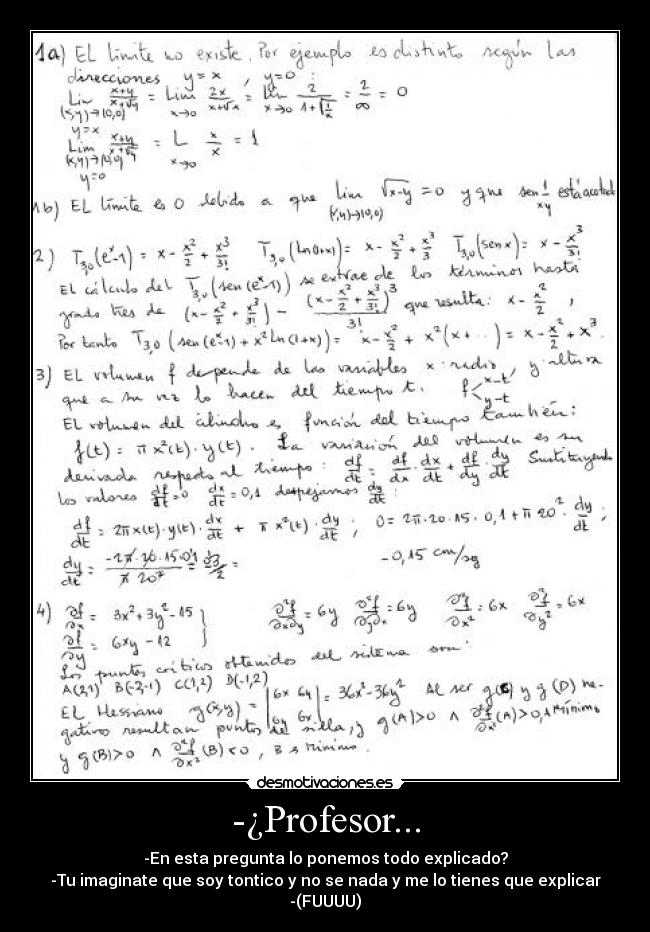 1a) El límite no existe. Por ejemplo es distinto según las
direcciones y = x , y = 0 :
Lim (x,y)→(0,0) y=x (x+y)/(x+√y) = Lim x→0 2x/(x+√x) = Lim x→0 2/(1+√(1/x)) = 2/∞ = 0
Lim (x,y)→(0,0) y=0 (x+y)/(x+√y) = L x→0 x/x = 1
1b) El límite es 0 debido a que lim (x,y)→(0,0) √x-y = 0 y que sen 1/xy está acotada
2) T3,0(e^x-1) = x - x²/2 + x³/3! T3,0(Ln(1+x)) = x - x²/2 + x³/3 T3,0(sen x) = x - x³/3!
El cálculo del T3,0(sen(e^x-1)) se extrae de los términos hasta
grado tres de (x - x²/2 + x³/3!) - (x - x²/2 + x³/3!)³/3! que resulta: x - x²/2 ,
Por tanto T3,0(sen(e^x-1) + x² Ln(1+x)) = x - x²/2 + x²(x+...) = x - x²/2 + x³.
3) El volumen f depende de las variables x: radio, y: altura
que a su vez lo hacen del tiempo t. f< x-t y-t
El volumen del cilindro es función del tiempo también:
f(t) = π x²(t)·y(t). La variación del volumen es su
derivada respecto al tiempo: df/dt = df/dx · dx/dt + df/dy · dy/dt Sustituyendo
los valores df/dt = 0 dx/dt = 0,1 despejamos dy/dt :
df/dt = 2π x(t)·y(t)· dx/dt + π x²(t)· dy/dt ; 0 = 2π·20·15·0,1 + π 20² · dy/dt ;
dy/dt = = -0,15 cm/sg
4) ∂f/∂x = 3x²+3y²-15 ∂²f/∂x∂y = 6y ∂²f/∂y∂x = 6y ∂²f/∂x² = 6x ∂²f/∂y² = 6x
∂f/∂y = 6xy - 12
Los puntos críticos obtenidos del sistema son:
A(2,1) B(-2,-1) C(1,2) D(-1,-2)
El Hessiano g(x,y) = |6x 6y 6y 6x| = 36x²-36y² Al ser g(C) y g(D) ne-
gativos resultan puntos de silla, y g(A)>0 ∧ ∂²f/∂x²(A)>0, A Mínimo
y g(B)>0 ∧ ∂²f/∂x²(B)<0, B
desmotivaciones.es
-¿Profesor...
-En esta pregunta lo ponemos todo explicado?
-Tu imaginate que soy tontico y no se nada y me lo tienes que explicar
-(FUUUU)